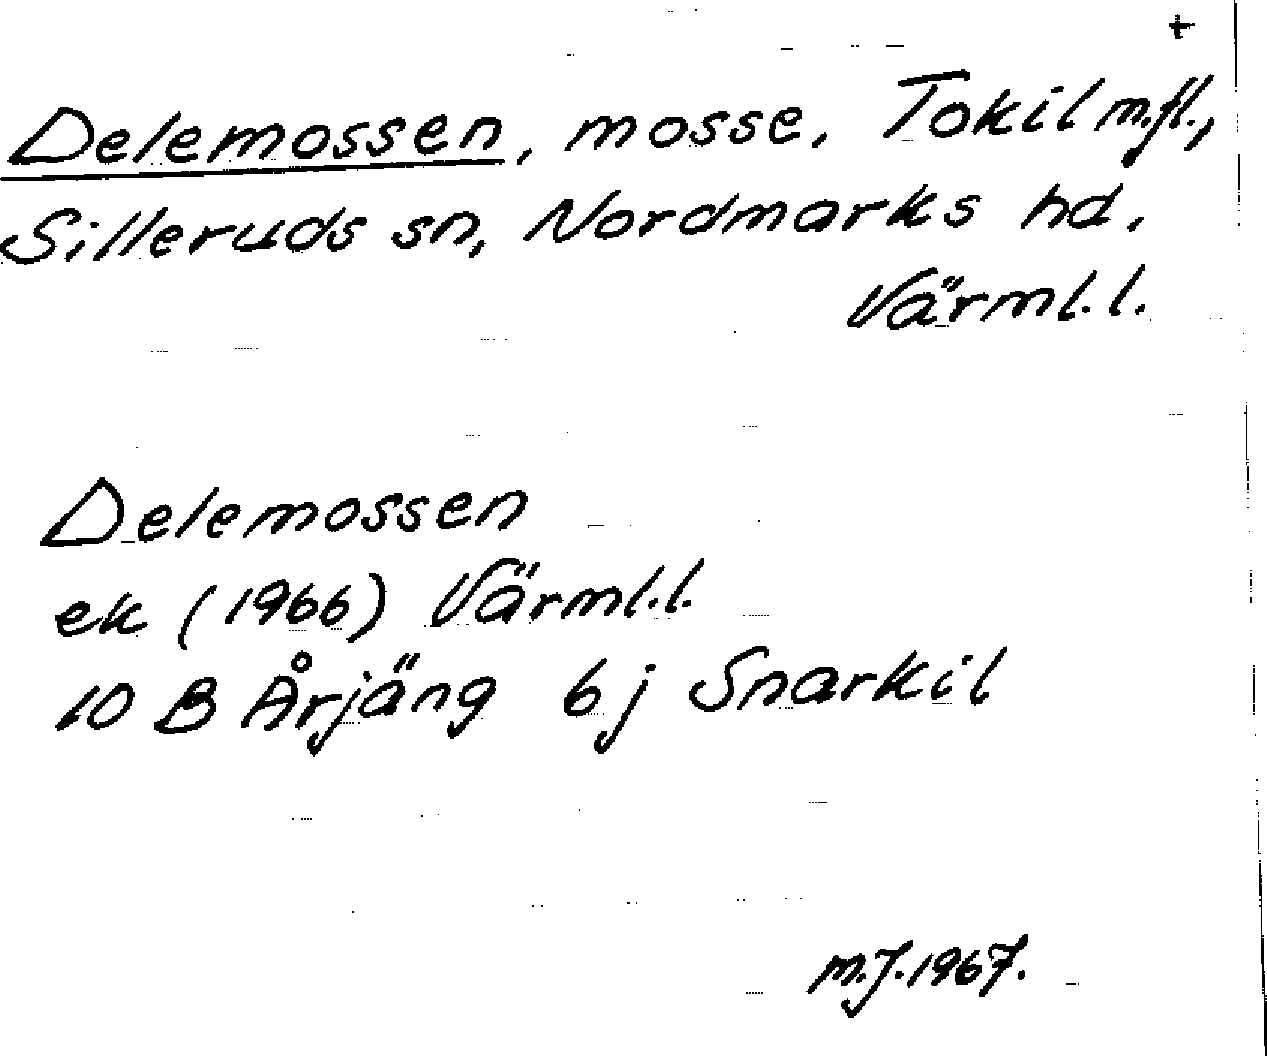 +
Delemossen, mosse, Tokil m.fl.,
Silleruds sn, Nordmarks hd,
Värml.l.
Delemossen
ek (1966) Värml.l.
10 B Årjäng 6j Snarkil
M.J. 1967.